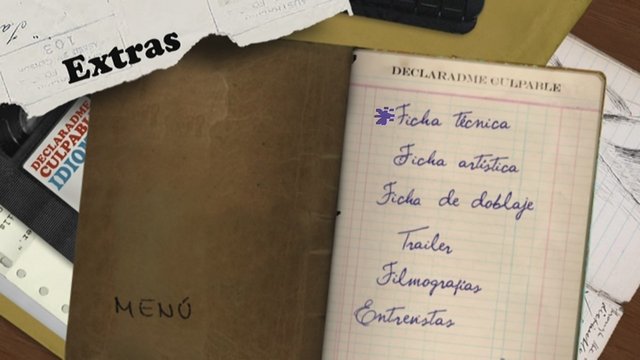 Extras
103
DECLARADME CULPABLE
Ficha técnica
Ficha artística
Ficha de doblaje
Trailer
Filmografías
Entrevistas
DECLARADME
CULPABLE
IDIO
MENÚ